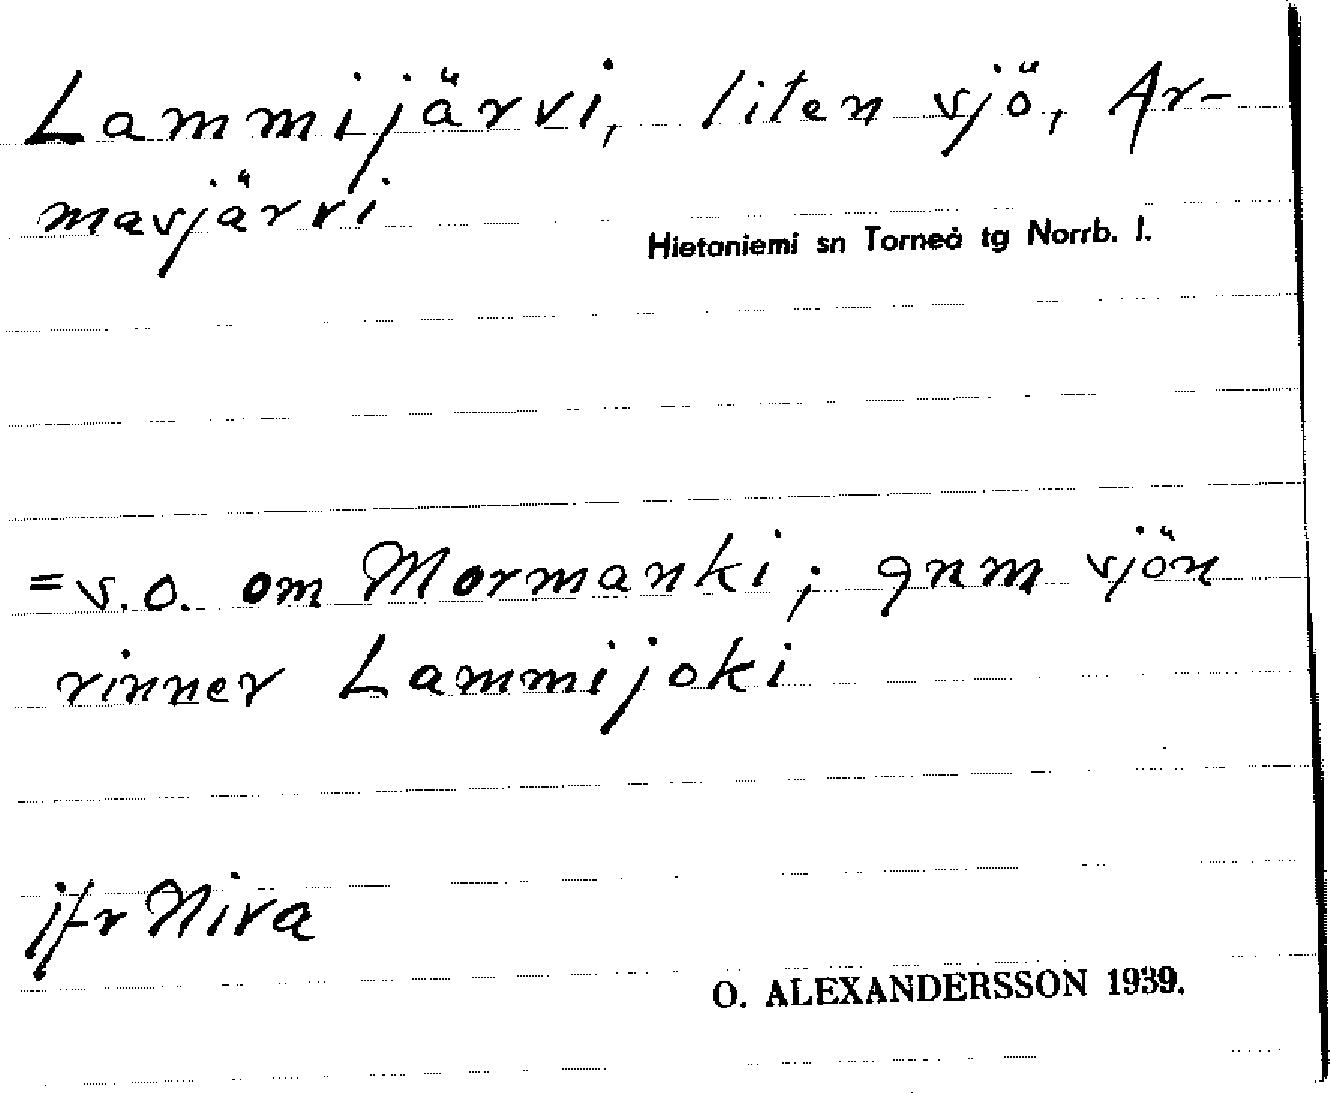 Lammijärvi, liten sjö, Ar-
masjärvi
Hietaniemi sn Torneå tg Norrb. l.
= s.o. om Mormanki; gnm sjön
rinner Lammijoki
jfr Niva
O. ALEXANDERSSON 1939.